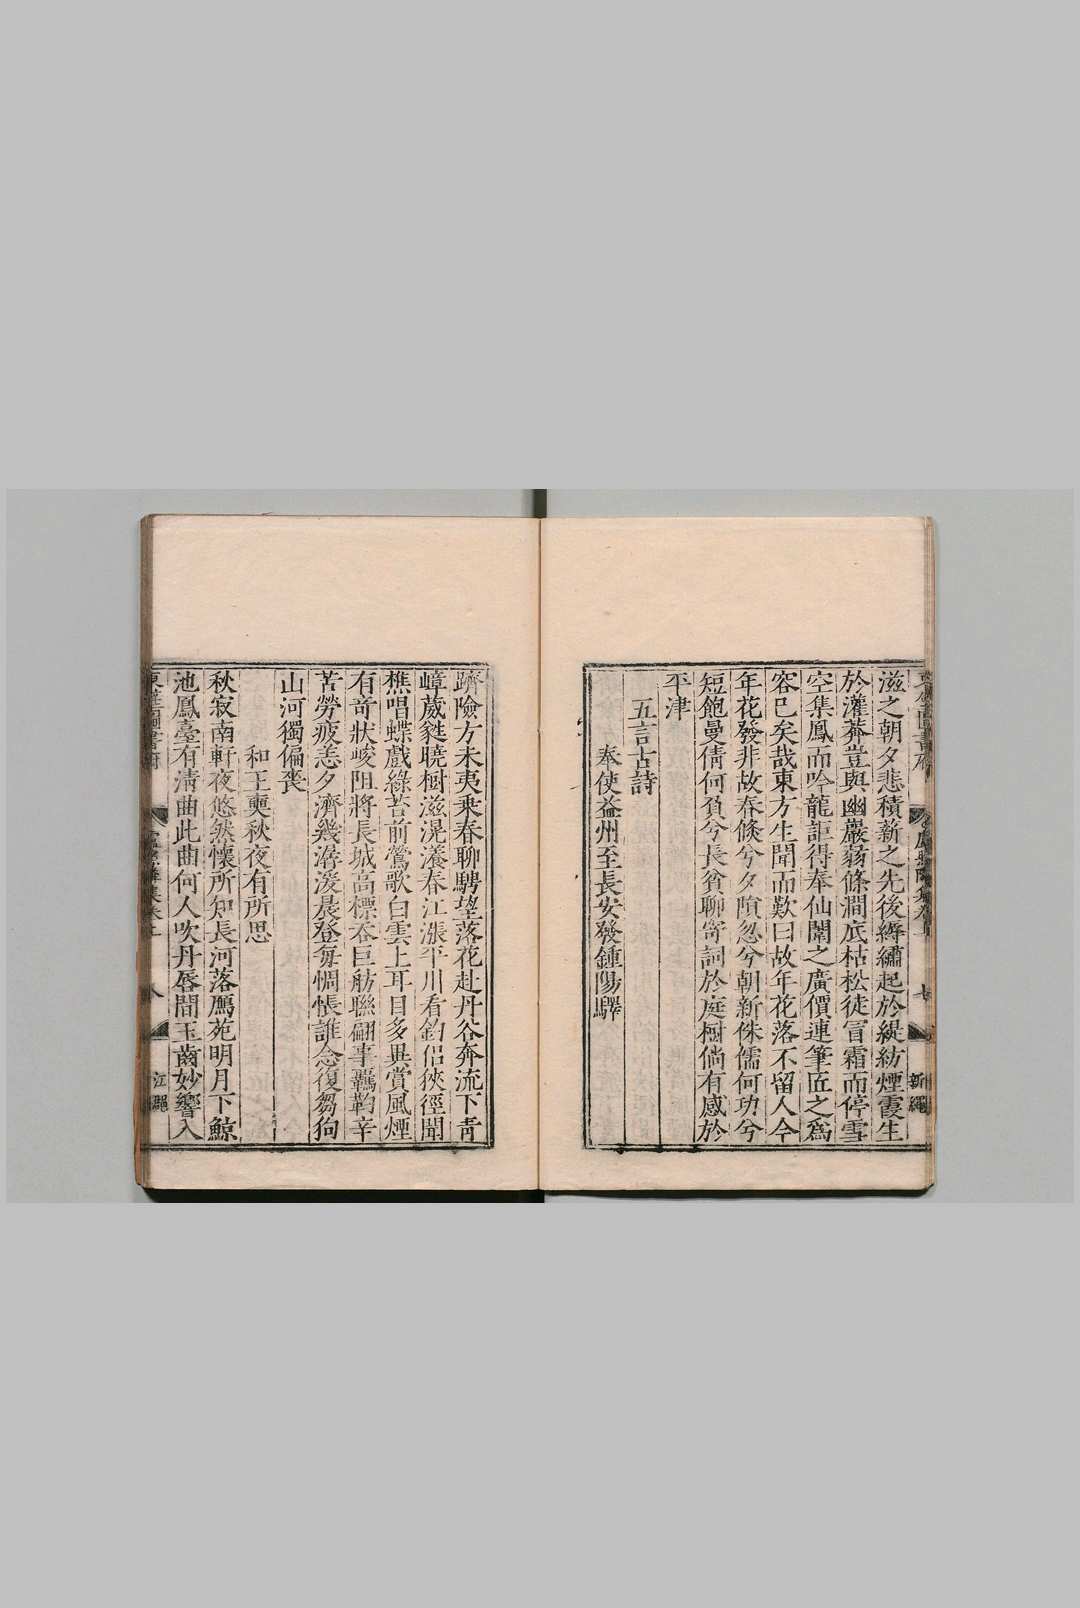 滋之朝夕悲積薪之先後縟繡起於緹紡煙霞生
於灌莽豈與幽巖蒻條澗底枯松徒冒霜而停雪
空集鳳而吟龍詎得奉仙闈之廣價連筆匠之為
容已矣哉東方生聞而歎曰故年花落不留人今
年花發非故春倏兮夕隕忽兮朝新侏儒何功兮
短飽曼倩何負兮長貧聊寄詞於庭樹倘有感於
平津
五言古詩
奉使益州至長安發鍾陽驛
躋險方未夷乗春聊騁望落花赴丹谷奔流下青
嶂葳蕤曉樹滋滉瀁春江漲平川看釣侶狹徑聞
樵唱蝶戲綠苔前鶯歌白雲上耳目多異賞風煙
有竒狀峻阻將長城高標吞巨舫聯翩事羈靮辛
苦勞疲恙夕濟幾潺湲晨登每惆悵誰念復芻狗
山河獨偏喪
和王奭秋夜有所思
秋寂南軒夜悠然懷所知長河落鴈苑明月下鯨
池鳳臺有清曲此曲何人吹丹唇間玉齒妙響入
八
江